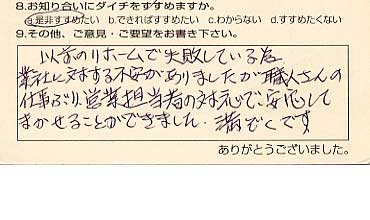 8.お知り合いにダイチをすすめますか。
a.是非すすめたい b.できればすすめたい c.わからない d.すすめたくない
9.その他、ご意見・ご要望をお書き下さい。
以前のリホームで失敗している為
業社に対する不安がありましたが職人さんの
仕事ぶり、営業担当者の対応で安心して
まかせることができました。満ぞくです
ありがとうございました。